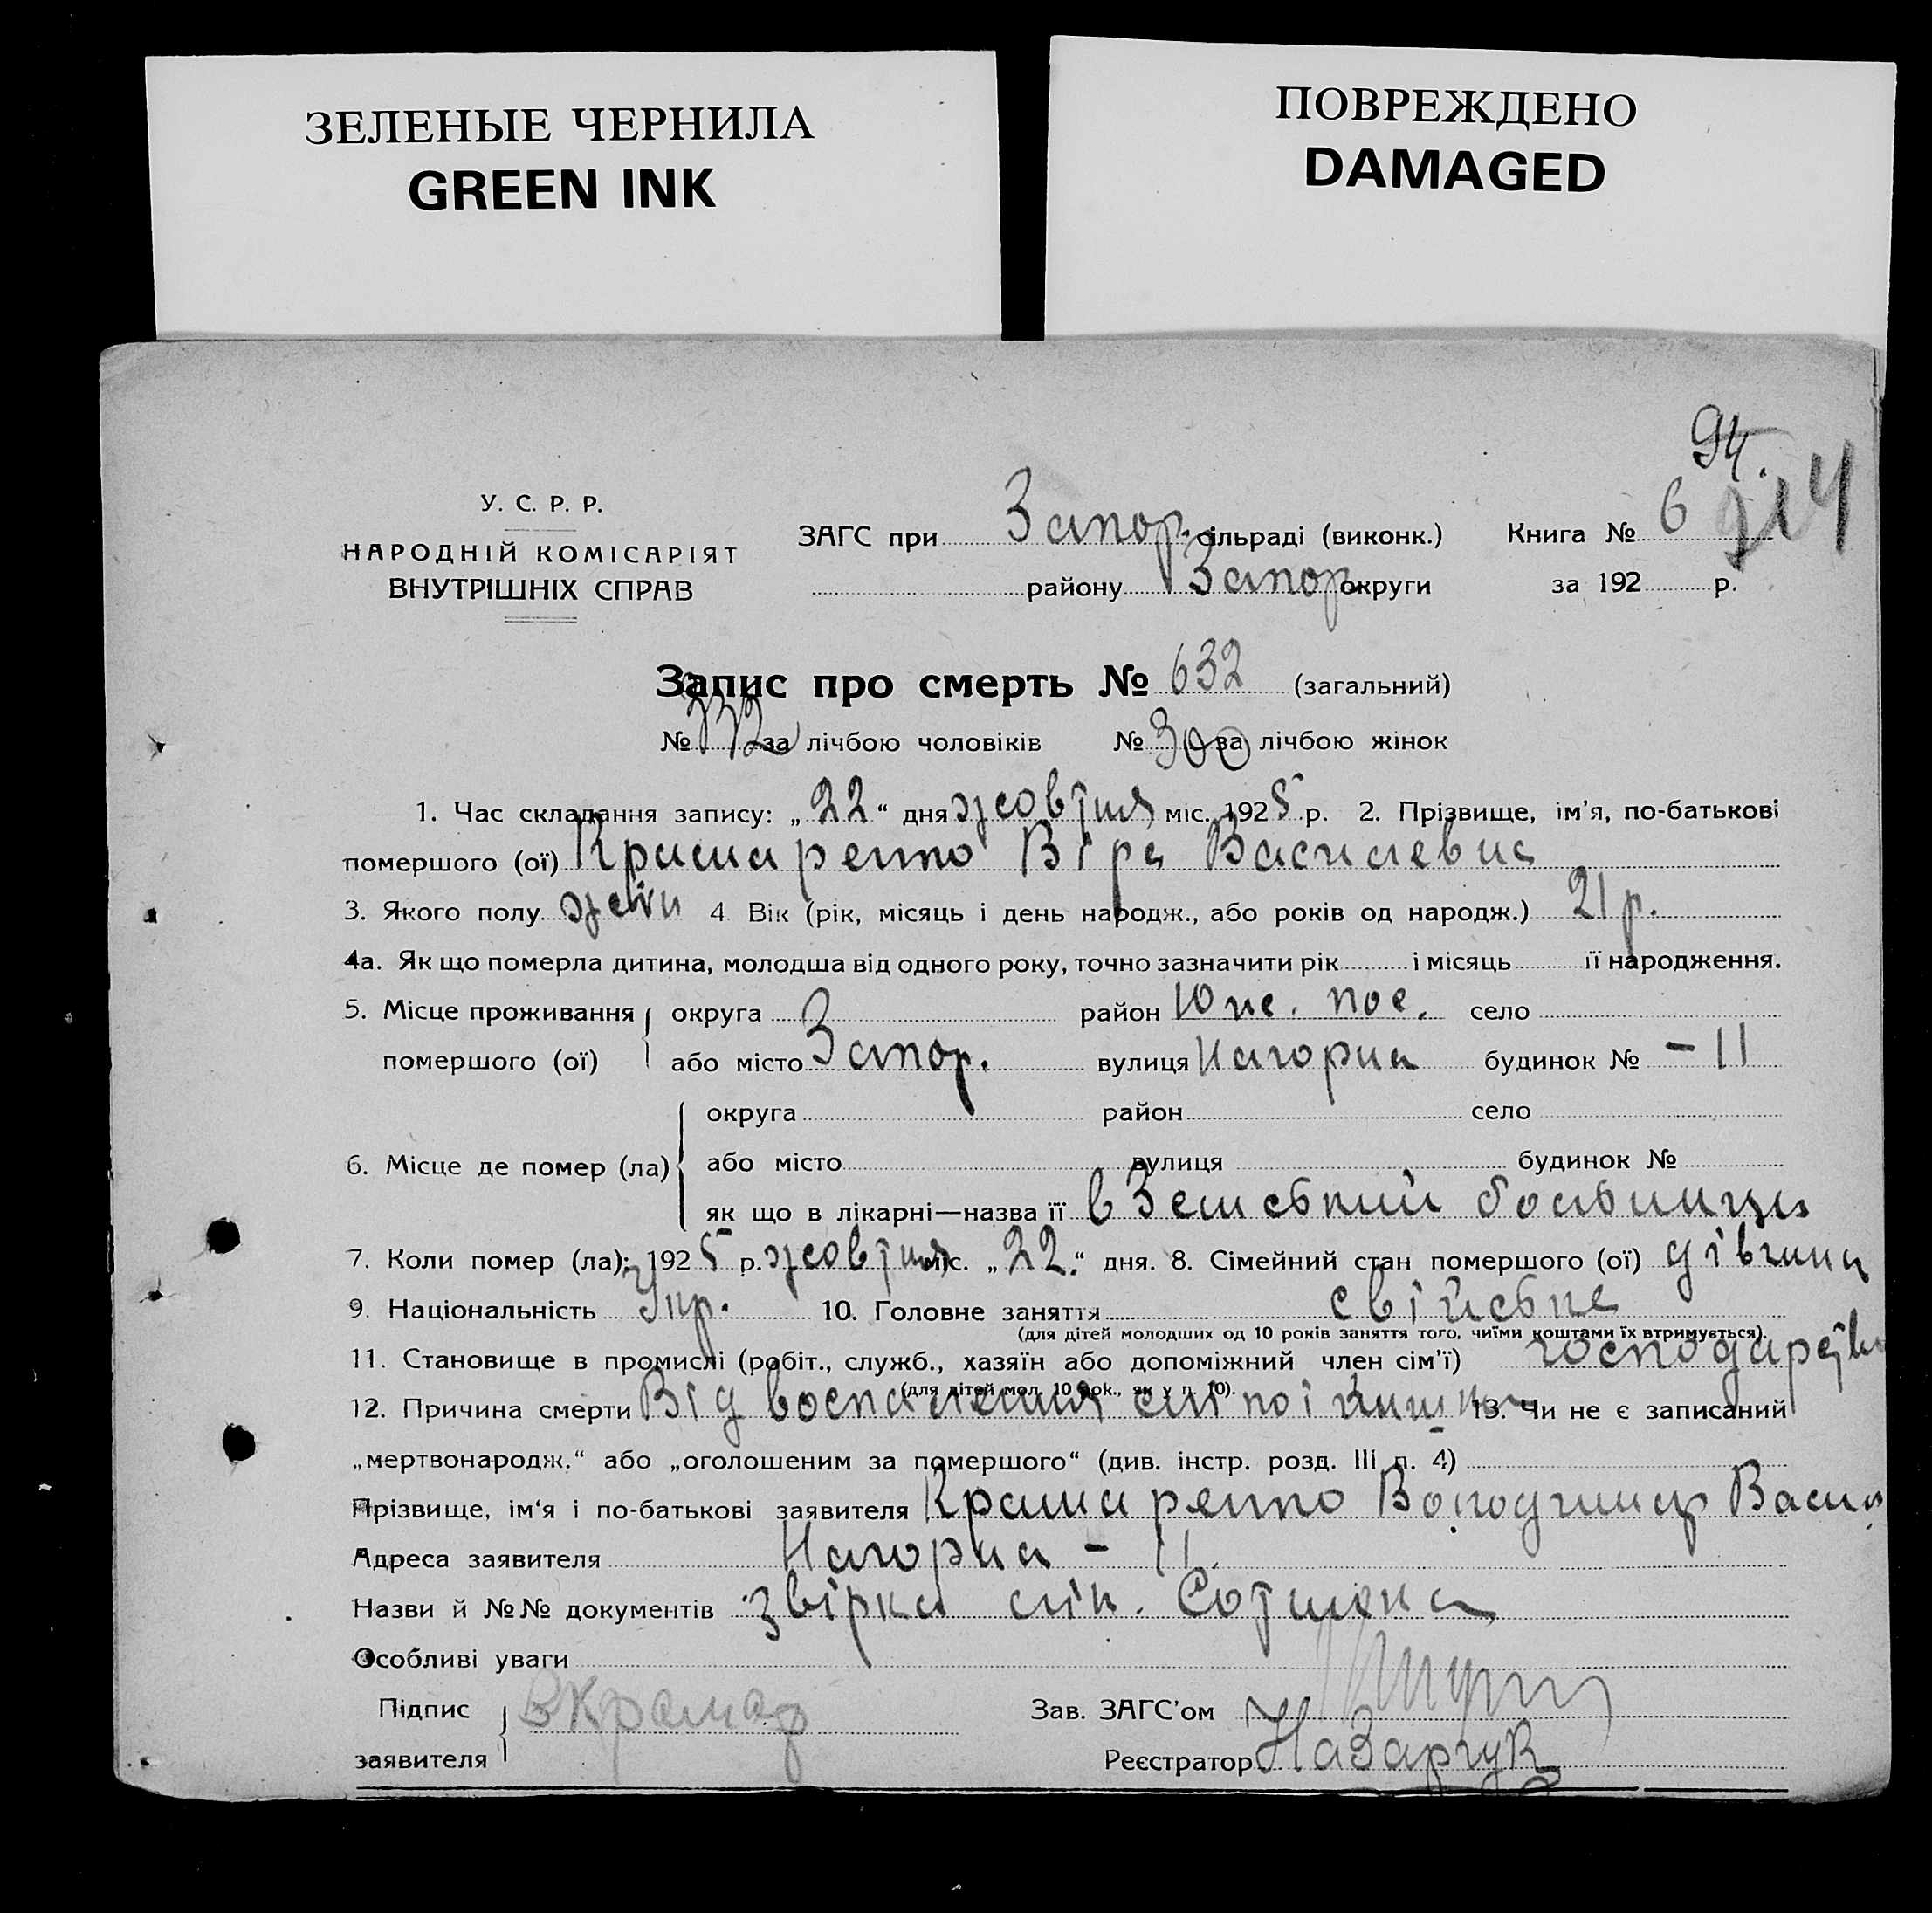 ЗЕЛЕНЫЕ ЧЕРНИЛА
GREEN INK
ПОВРЕЖДЕНО
DAMAGED
94.
У. С. Р. Р.
НАРОДНІЙ КОМІСАРІЯТ
ВНУТРІШНІХ СПРАВ
ЗАГС при Запор. сільраді (виконк.) Книга № 6 214
району Запор. округи за 192 р.
Запис про смерть № 632 (загальний)
№ 332 за лічбою чоловіків № 300 за лічбою жінок
1. Час складання запису: „22“ дня жовтня міс. 1925 р. 2. Прізвище, ім’я, по-батькові
помершого (ої) Крамаренко Віра Василевна
3. Якого полу жін 4. Вік (рік, місяць і день народж., або років од народж.) 21 р.
4а. Як що померла дитина, молодша від одного року, точно зазначити рік і місяць її народження.
5. Місце проживання помершого (ої) округа район Юж. пос. село
або місто Запор. вулиця Нагорна будинок № – 11
6. Місце де помер (ла) округа район село
або місто вулиця будинок №
як що в лікарні—назва її в Земський больници
7. Коли помер (ла): 1925 р. жовтня міс. „22.“ дня. 8. Сімейний стан помершого (ої) дівчина
9. Національність Укр. 10. Головне заняття свійське
(для дітей молодших од 10 років заняття того, чиїми коштами їх втримується).
11. Становище в промислі (робіт., служб., хазяїн або допоміжний член сім’ї) господарство
(для дітей мол. 10 рок., як у п. 10).
12. Причина смерти Від воспалення сліпої кишки 13. Чи не є записаний
„мертвонародж.“ або „оголошеним за помершого“ (див. інстр. розд. III п. 4)
Прізвище, ім‘я і по-батькові заявителя Крамаренко Володимир Васил
Адреса заявителя Нагорна – 11.
Назви й №№ документів звірка лік. Сотмана
Особливі уваги
Підпис заявителя ВКрамар Зав. ЗАГС’ом
Реєстратор Назарчук